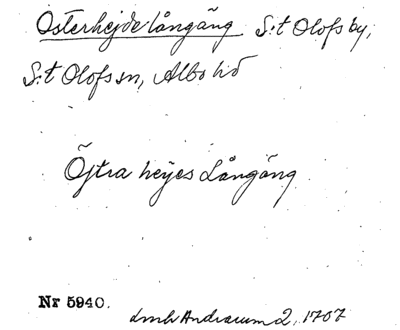 Österhejdelångäng S:t Olofs by,
S:t Olofs sn, Albo hd
Öjtra heijes Långäng
Nr 5940.
lmh Andrarum 2, 1707